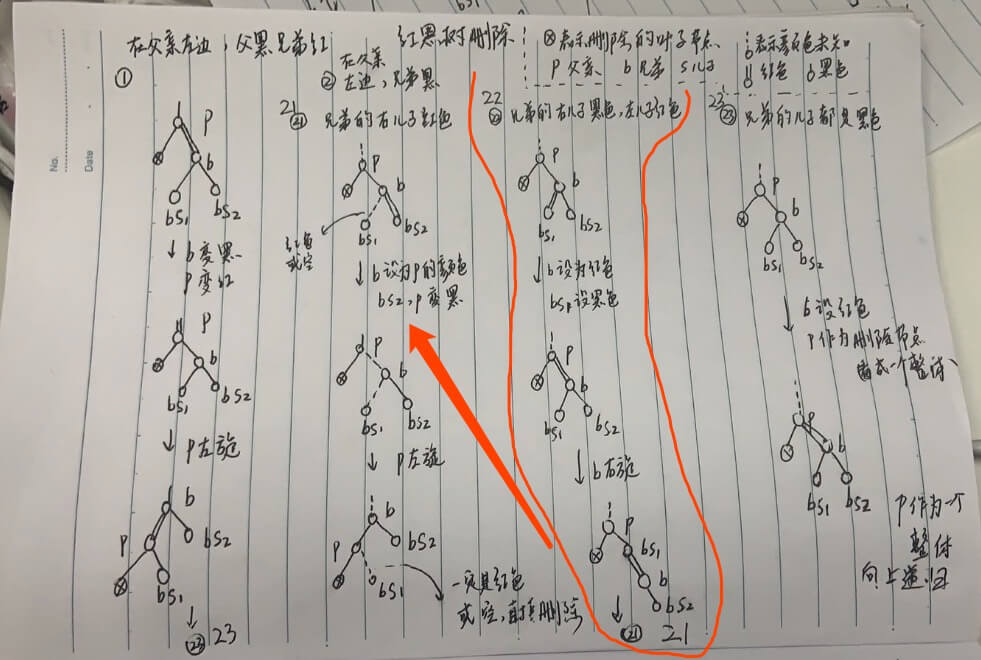 No.
Date
在父亲左边，父黑兄弟红
①
红黑树删除
⊗表示删除的叶子节点
P 父亲 b 兄弟 s儿子
表示颜色未知
红色 黑色
在父亲
② 左边，兄弟黑
21
㉑ 兄弟的右儿子红色
22
㉒ 兄弟的右儿子黑色，左儿子红色
23
㉓ 兄弟的儿子都是黑色
P
b
bS1
bS2
↓ b变黑
P变红
P
b
bS1
bS2
↓ P左旋
b
P
bS2
bS1
↓
㉓ 23
P
b
bS1
bS2
红色
或空
↓ b设为P的颜色
bS2，P变黑
P
b
bS1
bS2
↓ P左旋
b
P
bS2
bS1
一定是红色
或空，直接删除
P
b
bS1
bS2
↓ b设为红色
bS1设黑色
P
b
bS1
bS2
↓ b右旋
P
bS1
b
bS2
↓
㉑ 21
P
b
bS1
bS2
↓ b设红色
P作为删除节点
看成一个整体
P
b
bS1
bS2
P作为一个
整体
向上递归